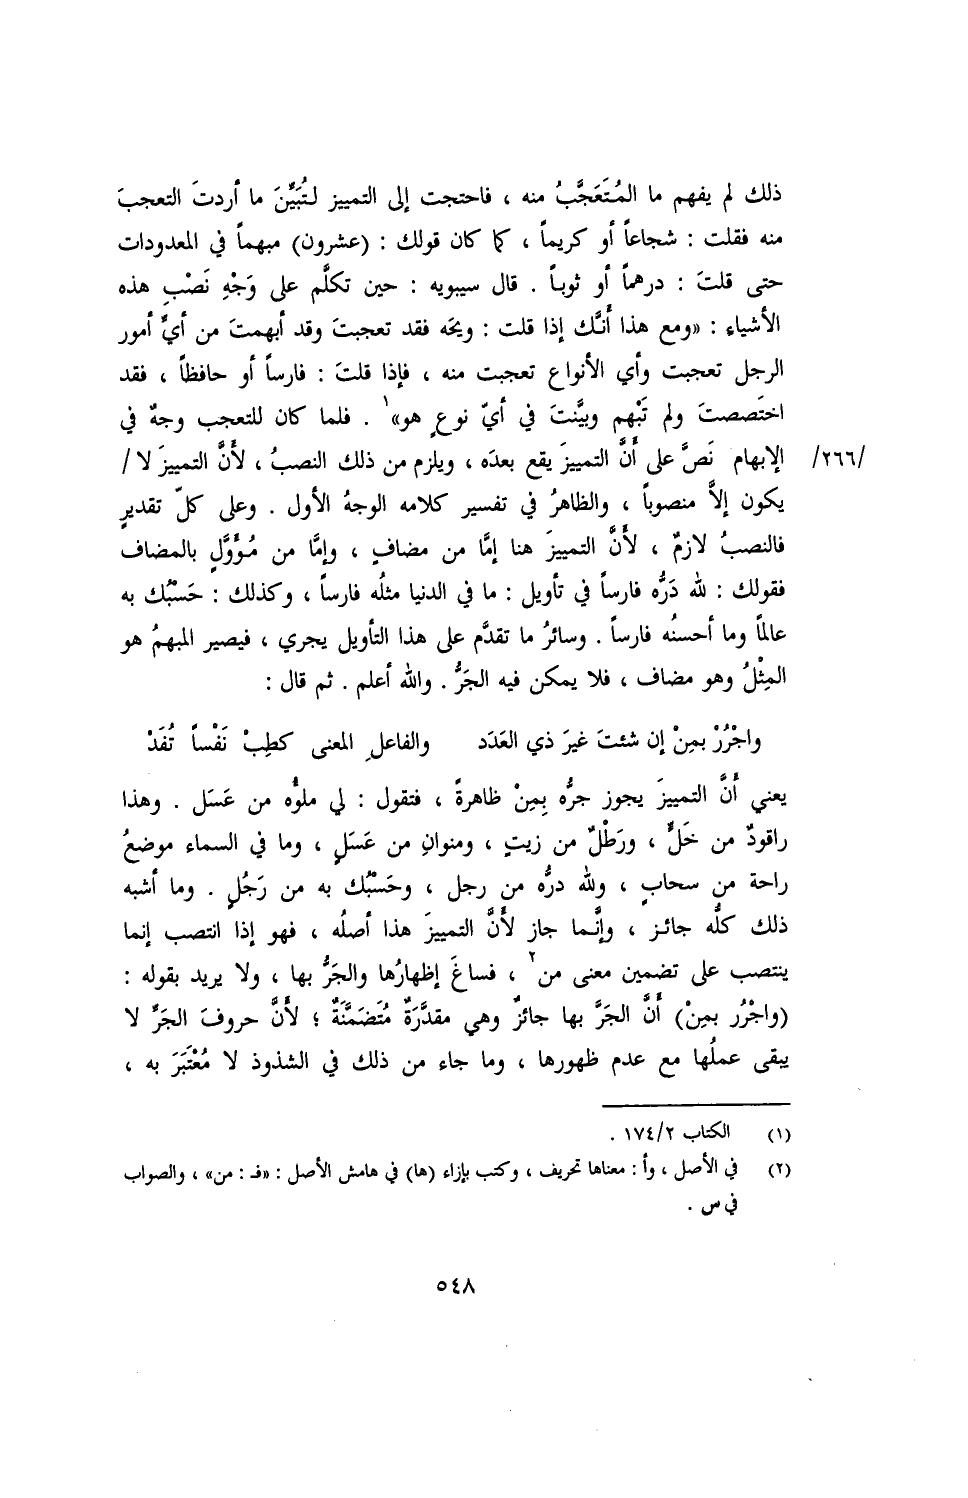 ذلك لم يفهم ما المُتَعَجَّبُ منه ، فاحتجت إلى التمييز لتُبَيِّنَ ما أردتَ التعجبَ
منه فقلت : شجاعاً أو كريماً ، كما كان قولك : (عشرون) مبهماً في المعدودات
حتى قلتَ : درهماً أو ثوباً . قال سيبويه : حين تكلَّم على وَجْهِ نَصْبِ هذه
الأشياء : «ومع هذا أنَّك إذا قلت : ويحَه فقد تعجبتَ وقد أبهمتَ من أيِّ أمور
الرجل تعجبت وأي الأنواع تعجبت منه ، فإذا قلتَ : فارساً أو حافظاً ، فقد
اختَصصتَ ولم تَبْهم وبيَّنتَ في أيّ نوعٍ هو»١ . فلما كان للتعجب وجهٌ في
/٢٦٦/ الإبهام نَصَّ على أنَّ التمييزَ يقع بعدَه ، ويلزم من ذلك النصبُ ، لأنَّ التمييزَ لا /
يكون إلاَّ منصوباً ، والظاهرُ في تفسير كلامه الوجهُ الأول . وعلى كلّ تقديرٍ
فالنصبُ لازمٌ ، لأنَّ التمييزَ هنا إمَّا من مضافٍ ، وإمَّا من مُؤَوَّلٍ بالمضاف
فقولك : لله دَرُّه فارساً في تأويل : ما في الدنيا مثلُه فارساً ، وكذلك : حَسْبُك به
عالماً وما أحسنُه فارساً . وسائرُ ما تقدَّم على هذا التأويل يجري ، فيصير المبهمُ هو
المِثْلُ وهو مضاف ، فلا يمكن فيه الجَرُّ . والله أعلم . ثم قال :
واجْرُرْ بمِنْ إن شئتَ غيرَ ذي العَدَد والفاعلِ المعنى كطِبْ نَفْساً تُفَدْ
يعني أنَّ التمييزَ يجوز جرُّه بِمِنْ ظاهرةً ، فتقول : لي ملؤُه من عَسَل . وهذا
راقودٌ من خَلٍّ ، ورَطْلٌ من زيتٍ ، ومنوانِ من عَسَلٍ ، وما في السماء موضعُ
راحة من سحابٍ ، ولله درُّه من رجل ، وحَسْبُك به من رَجُلٍ . وما أشبه
ذلك كلُّه جائز ، وإنَّما جاز لأنَّ التمييزَ هذا أصلُه ، فهو إذا انتصب إنما
ينتصب على تضمين معنى من٢ ، فساغَ إظهارُها والجَرُّ بها ، ولا يريد بقوله :
(واجْرُر بمِنْ) أنَّ الجَرَّ بها جائزٌ وهي مقدَّرَةٌ مُتَضَمَّنَةٌ ؛ لأنَّ حروفَ الجَرِّ لا
يبقى عملُها مع عدم ظهورها ، وما جاء من ذلك في الشذوذ لا مُعْتَبَرَ به ،
(١) الكتاب ١٧٤/٢ .
(٢) في الأصل ، وأ : معناها تحريف ، وكتب بإزاء (ها) في هامش الأصل : «فـ : من» ، والصواب
في س .
٥٤٨